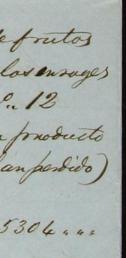 de frutos
los envages
º. 12
producto
an perdido)
5304 " " "